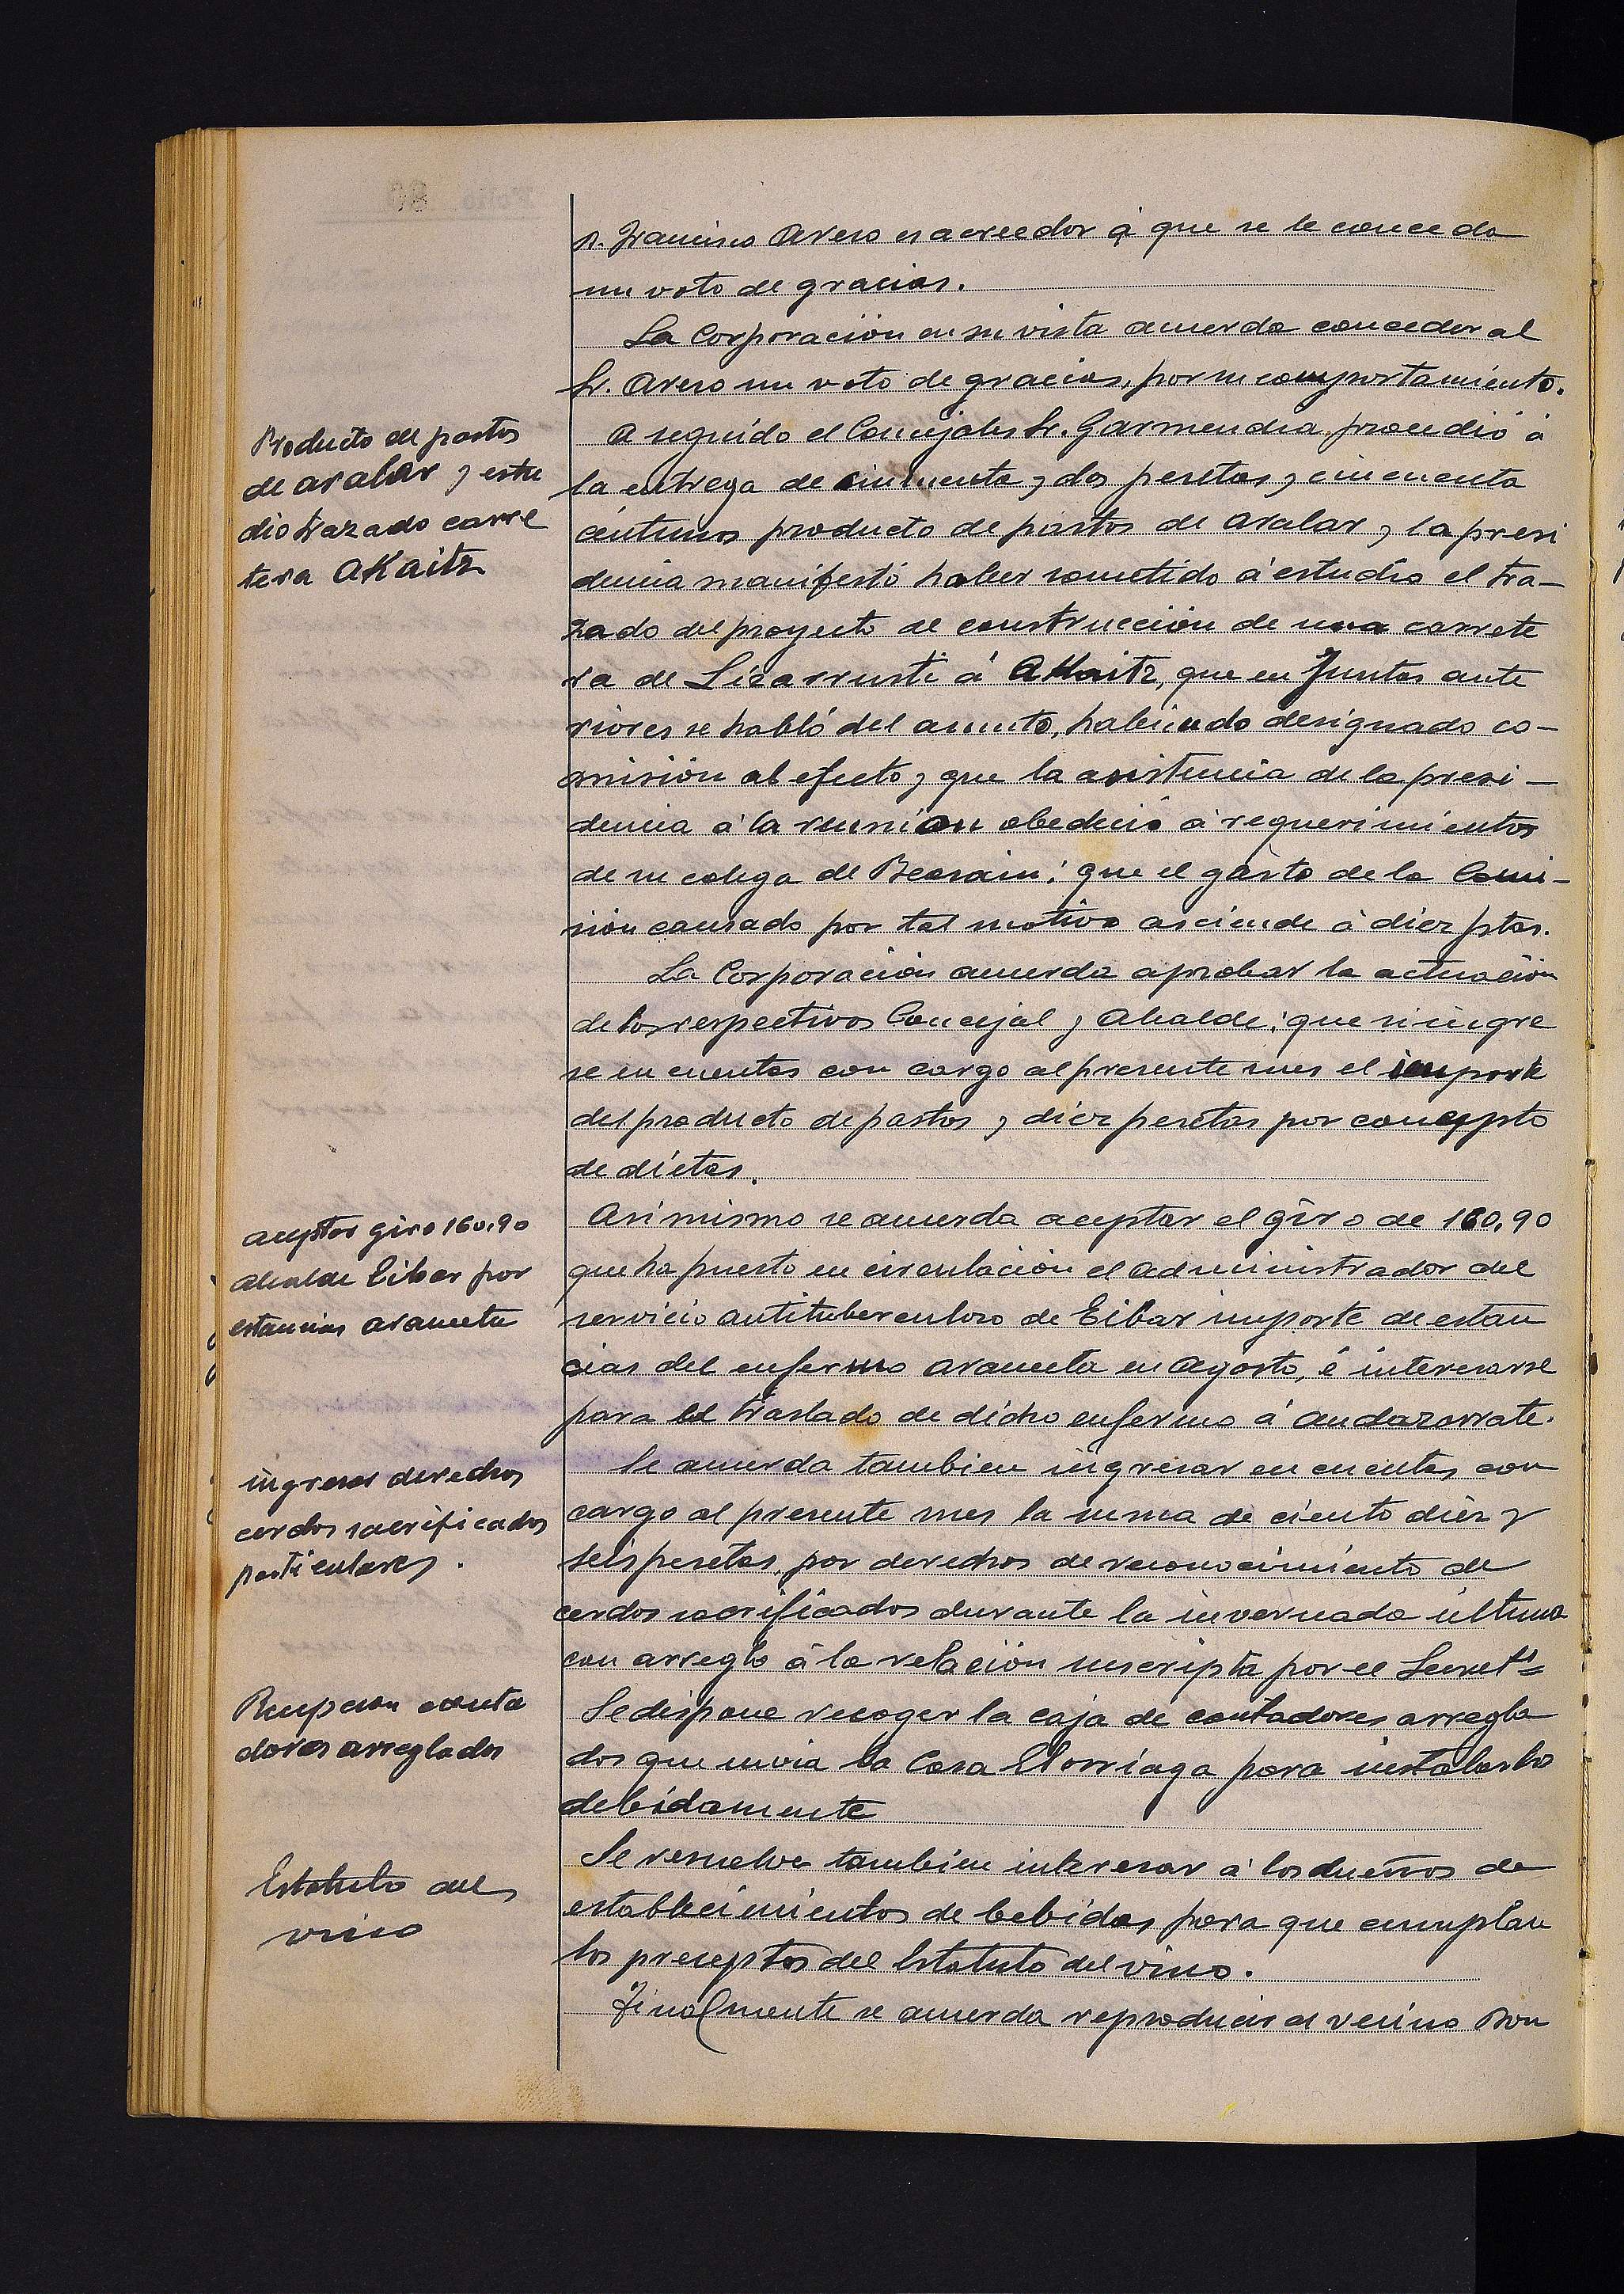 D. Francisco Areso es acreedor á que se le conceda
un voto de gracias.
La Corporación en su vista acuerda conceder al
Sr. Areso un voto de gracias, por su comportamiento.
Producto de pastos
de aralar y estu
dio trazado carre
tera Akaitz
A seguido el Concejales Sr. Garmendia procedió á
la entrega de cincuenta y dos pesetas y cincuenta
céntimos producto de pastos de aralar y la presi
dencia manifestó haber sometido á estudio el tra-
zado del proyecto de construcción de una carrete
ra de Lizarrusti á Akaitz, que en Juntas ante
riores se habló del asunto, habiendo designado co-
misión al efecto, y que la asistencia de la presi-
dencia á la reunion obedeció á requerimientos
de su colega de Beasain; que el gasto de la Comi-
sión causado por tal motivo asciende á diez ptas.
La Corporación acuerda aprobar la actuación
de los respectivos Concejal y Alcalde; que se ingre
se en cuentas con cargo al presente mes el importe
del producto de pastos y diez pesetas por concepto
de dietas.
aceptar giro 160,90
alcalde Eibar por
estancias arameta
Asimismo se acuerda aceptar el giro de 160,90
que ha puesto en circulación el administrador del
servicio antituberculoso de Eibar importe de estan
cias del enfermo arameta en Agosto, é interesarse
para el traslado de dicho enfermo á andazarrate.
ingresar derechos
cerdos sacrificados
particulares.
Se acuerda tambien ingresar en cuentas con
cargo al presente mes la suma de ciento diez y
seis pesetas, por derechos de reconocimiento de
cerdos sacrificados durante la invernada última
con arreglo á la relación suscripta por el Secretº
Recepcion conta
dores arreglados
Se dispone recoger la caja de contadores arregla
dos que envia la Casa Elorriaga para instalarlos
debidamente
Estatuto del
vino
Se resuelve tambien interesar á los dueños de
establecimientos de bebidas, para que cumplan
los preceptos del Estatuto del vino.
Finalmente se acuerda reproducir al vecino Don